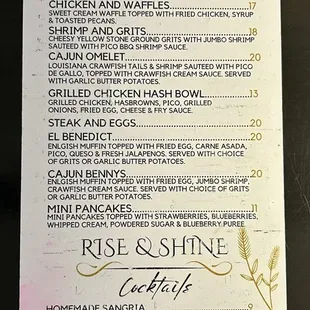 CHICKEN AND WAFFLES............17
SWEET CREAM WAFFLE TOPPED WITH FRIED CHICKEN, SYRUP
& TOASTED PECANS.
SHRIMP AND GRITS............18
CHEESY YELLOW STONE GROUND GRITS WITH JUMBO SHRIMP
SAUTEED WITH PICO BBQ SHRIMP SAUCE.
CAJUN OMELET............20
LOUISIANA CRAWFISH TAILS & SHRIMP SAUTEED WITH PICO
DE GALLO, TOPPED WITH CRAWFISH CREAM SAUCE. SERVED
WITH GARLIC BUTTER POTATOES.
GRILLED CHICKEN HASH BOWL............13
GRILLED CHICKEN, HASBROWNS, PICO, GRILLED
ONIONS, FRIED EGG, CHEESE & FRY SAUCE.
STEAK AND EGGS............20
EL BENEDICT............20
ENLGISH MUFFIN TOPPED WITH FRIED EGG, CARNE ASADA,
PICO, QUESO & FRESH JALAPENOS. SERVED WITH CHOICE
OF GRITS OR GARLIC BUTTER POTATOES.
CAJUN BENNYS............20
ENLGISH MUFFIN TOPPED WITH FRIED EGG, JUMBO SHRIMP,
CRAWFISH CREAM SAUCE. SERVED WITH CHOICE OF GRITS
OR GARLIC BUTTER POTATOES.
MINI PANCAKES............11
MINI PANCAKES TOPPED WITH STRAWBERRIES, BLUEBERRIES,
WHIPPED CREAM, POWDERED SUGAR & BLUEBERRY PUREE.
RISE & SHINE
Cocktails
HOMEMADE SANGRIA............9